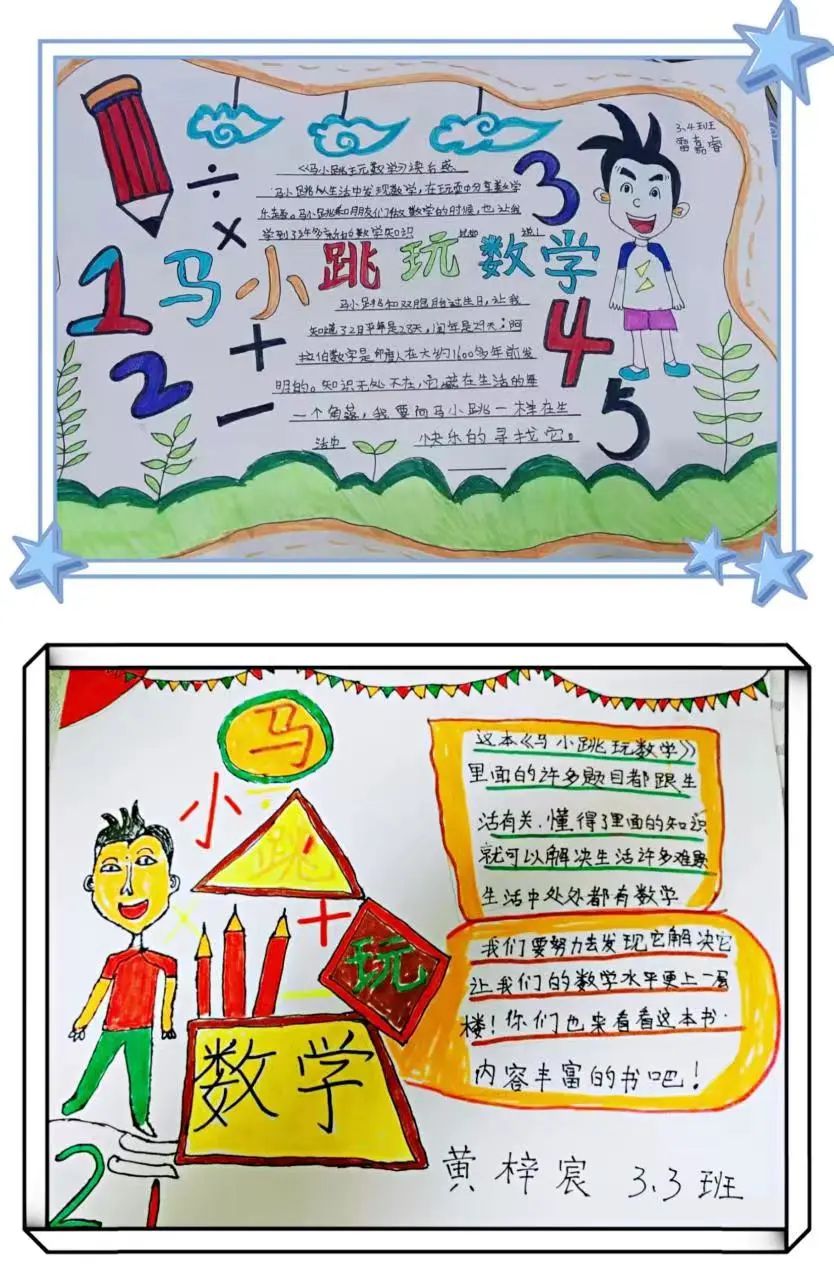 3.4班
雷嘉睿
《马小跳玩数学》读后感
马小跳从生活中发现数学，在玩耍中分享数学
乐趣。马小跳和朋友们做数学的时候，也让我
学到了许多新的数学知识
÷
×
3
马小跳玩数学
1
马小跳和双胞胎过生日，让我
知道了2月平年是28天，闰年是29天；阿
拉伯数字是印度人在大约1600多年前发
明的。知识无处不在，它藏在生活的每
一个角落，我要向马小跳一样在生
活中 快乐的寻找它。
+
2
4
－
5
马
小
跳
+
玩
数学
这本《马小跳玩数学》
里面的许多题目都跟生
活有关，懂得了里面的知识
就可以解决生活许多难题
生活中处处都有数学
我们要努力去发现它解决它
让我们的数学水平更上一层
楼！你们也来看看这本书.
内容丰富的书吧！
黄梓宸 3.3班
2
1